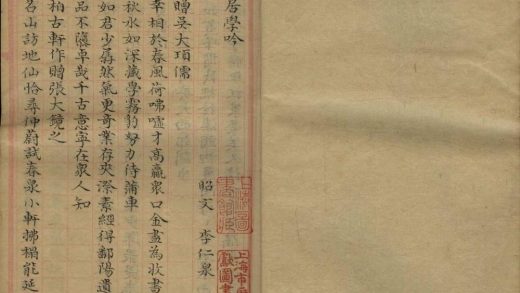 居學吟
昭文 李仁泉
贈吳大項儒
幸相於春風荷咈噓才高贏眾口金盡為收書
秋水如深藏學霧豹努力待蒲車
如君少孱然氣更奇業存夾漈素經得鄱陽遺
品不隳卓哉千古意寧在眾人知
柏古軒作贈張大鏡之
名山訪地仙恰尋仲蔚試春泉小軒拂榻能延